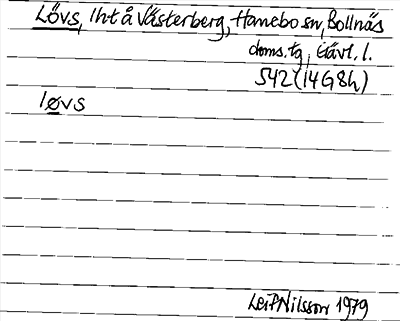 Lövs, lht å Västerberg, Hanebo sn, Bollnäs
doms.tg, Gävl. l.
542 (14G8h)
løvs
Leif Nilsson 1979